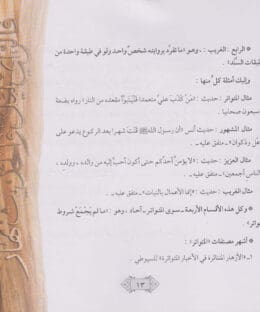 * الرابع : الغريب : ، وهو «ما تفرّد بروايته شخصٌ واحد ولو في طبقة واحدة من
طبقات السَّنَد» .
وإليك أمثلة كلٍّ منها :
مثال المتواتر : حديث : «مَنْ كَذَبَ عليَّ متعمدا فَلْيَتَبَوَّأْ مقعده من النار» رواه بضعة
وسبعون صحابيا .
مثال المشهور : حديث أنس «أن رسول الله ﷺ قَنَتَ شهرا بعد الركوع يدعو على
رِعْل وذَكوان» ـ متفق عليه ـ .
مثال العزيز : حديث : «لا يؤمنُ أحدُكم حتى أكون أحبَّ إليه من والده ، وولدِه ،
والناس أجمعين» ـ متفق عليه ـ .
مثال الغريب : حديث : «إنما الأعمال بالنيات» ـ متفق عليه ـ .
* وكل هذه الأقسام الأربعة ـ سوى المتواتر ـ آحاد ، وهو : «ما لم يَجْمَعْ شروط
المتواتر» .
* أشهر مصنفات «المتواتر» :
١ـ «الأزهار المتناثرة في الأخبار المتواترة» للسيوطي .
١٣